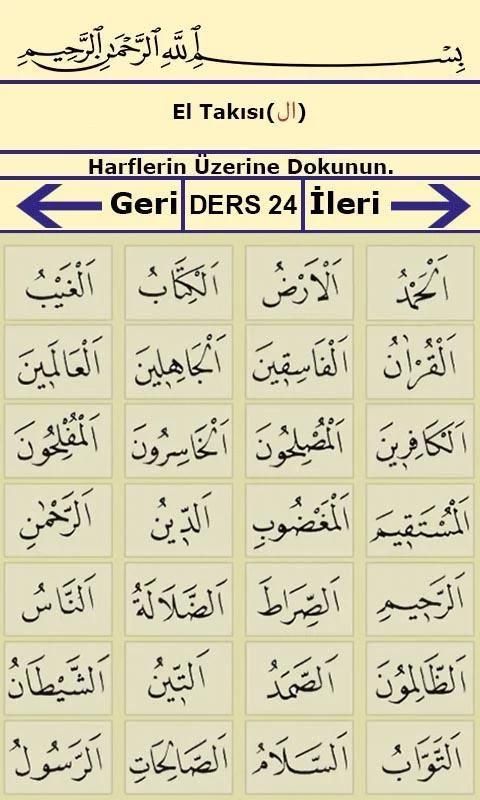 بِسْمِ اللّٰهِ الرَّحْمٰنِ الرَّحِيمِ
El Takısı(ال)
Harflerin Üzerine Dokunun.
Geri DERS 24 İleri
اَلْحَمْدُ اَلْاَرْضُ اَلْكِتَابُ اَلْغَيْبُ
اَلْقُرْاٰنُ اَلْفَاسِقِينَ اَلْجَاهِلِينَ اَلْعَالَمِينَ
اَلْكَافِرِينَ اَلْمُصْلِحُونَ اَلْخَاسِرُونَ اَلْمُفْلِحُونَ
اَلْمُسْتَقِيمَ اَلْمَغْضُوبِ اَلدِّينُ اَلرَّحْمٰنِ
اَلرَّحِيمِ اَلصِّرَاطَ اَلضَّلَالَةُ اَلنَّاسُ
اَلظَّالِمُونَ اَلصَّمَدُ اَلتِّينُ اَلشَّيْطَانُ
اَلتَّوَّابُ اَلسَّلَامُ اَلصَّالِحَاتِ اَلرَّسُولُ